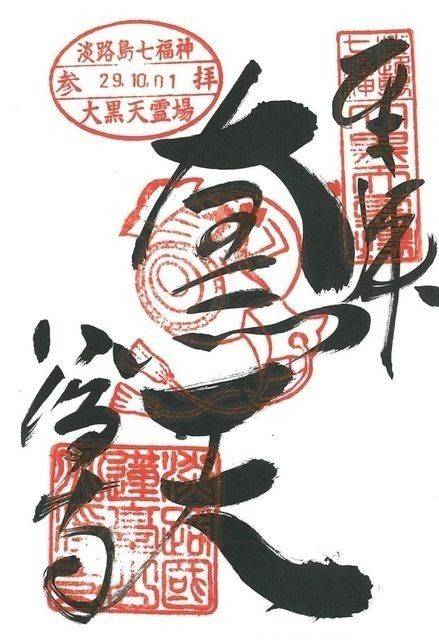 淡路島七福神
参 29.10.01 拝
大黒天霊場
奉拝
大黒天
八浄寺